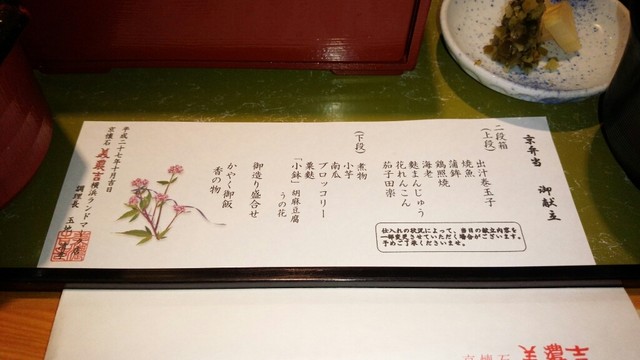 京弁当　御献立
二段箱
(上段)
出汁巻玉子
焼魚
蒲鉾
鶏照焼
海老
麩まんじゅう
花れんこん
茄子田楽
(下段)
煮物
小芋
南瓜
ブロッコリー
粟麩
「小鉢」胡麻豆腐
うの花
御造り盛合せ
かやく御飯
香の物
仕入れの状況によって、当日の献立内容を
一部変更させていただく場合がございます。
予めご了承くださいませ。
平成二十七年十月吉日
京懐石 美濃吉 横浜ランドマーク店
調理長 玉地
京懐石 美濃吉